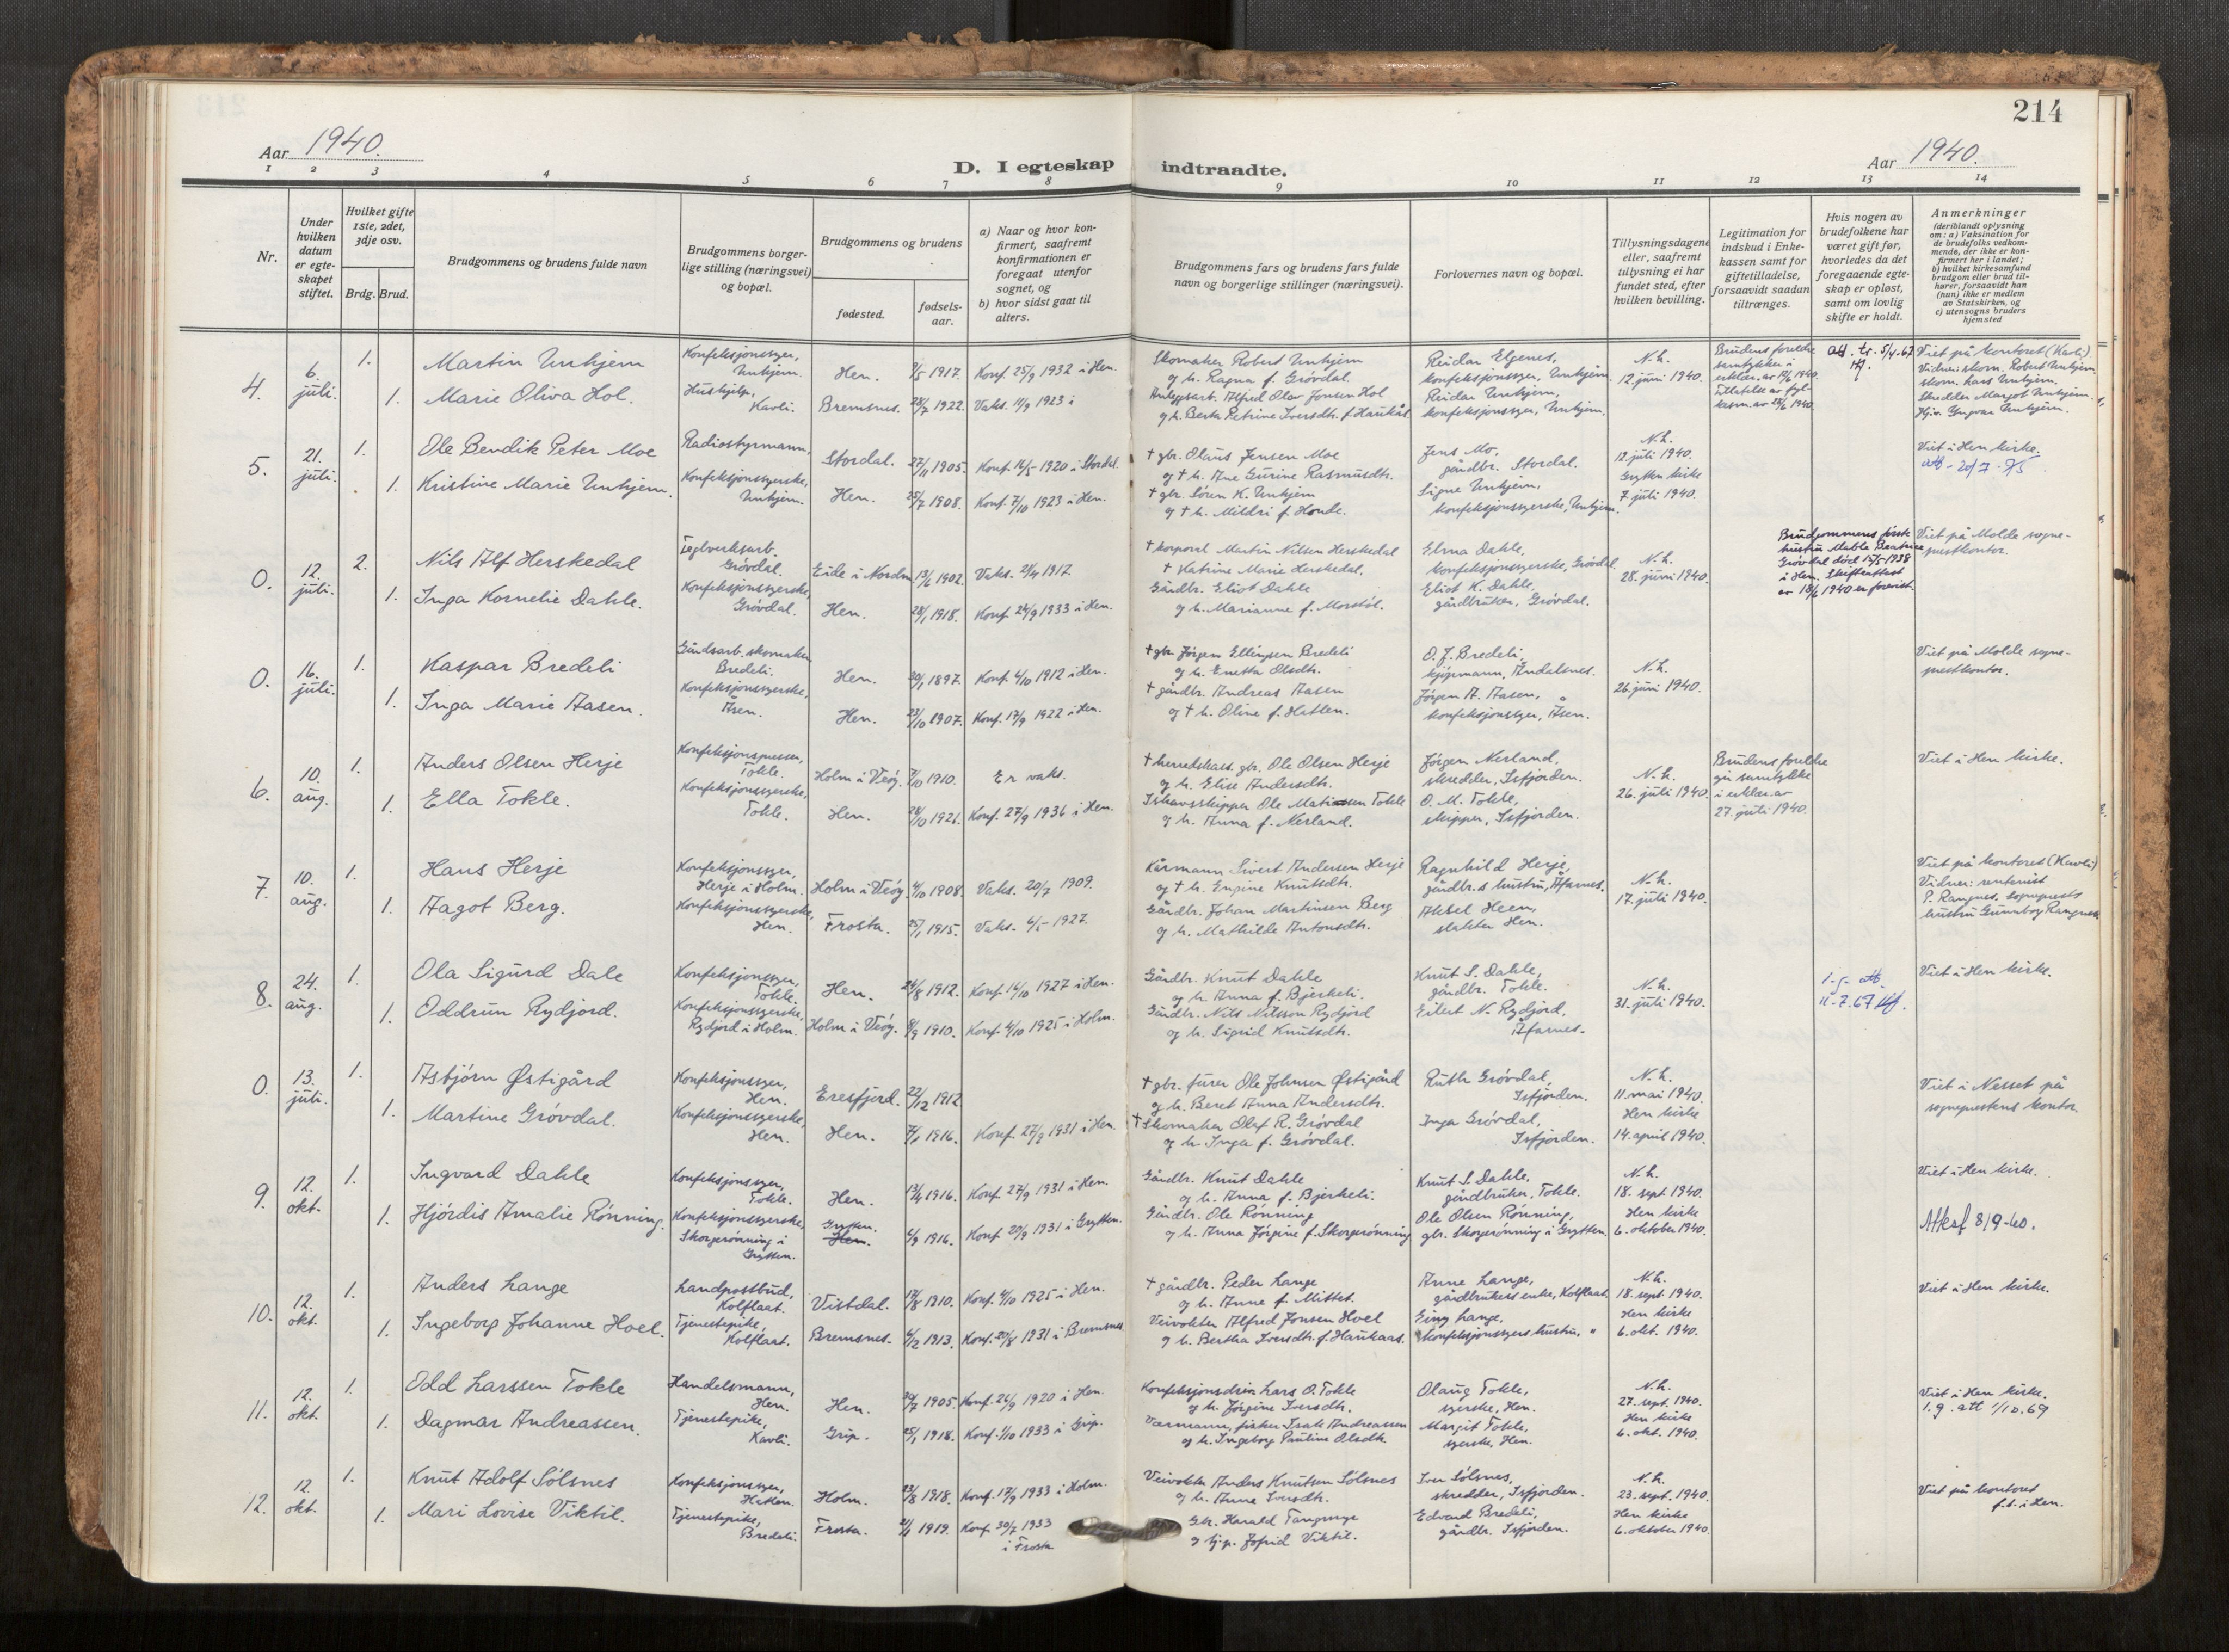 214
Aar 1940.
D. I egteskap indtraadte.
Aar 1940.
1 2 3 4 5 6 7 8 9 10 11 12 13 14
Nr.
Under hvilken datum er egteskapet stiftet.
Hvilket gifte 1ste, 2det, 3dje osv.
Brdg. Brud.
Brudgommens og brudens fulde navn
Brudgommens borgerlige stilling (næringsvei) og bopæl.
Brudgommens og brudens
fødested.
fødselsaar.
a) Naar og hvor konfirmert, saafremt konfirmationen er foregaat utenfor sognet, og
b) hvor sidst gaat til alters.
Brudgommens fars og brudens fars fulde navn og borgerlige stillinger (næringsvei).
Forlovernes navn og bopæl.
Tillysningsdagene eller, saafremt tillysning ei har fundet sted, efter hvilken bevilling.
Legitimation for indskud i Enkekassen samt for giftetilladelse, forsaavidt saadan tiltrænges.
Hvis nogen av brudefolkene har været gift før, hvorledes da det foregaaende egteskap er opløst, samt om lovlig skifte er holdt.
Anmerkninger (deriblandt oplysning om: a) Vaksination for de brudefolks vedkommende, der ikke er konfirmert her i landet; b) hvilket kirkesamfund brudgom eller brud tilhører, forsaavidt han (hun) ikke er medlem av Statskirken, og c) utensogns bruders hjemsted
4. 6. juli. 1. Martin Unhjem Konfeksjonssyer, Unhjem. Hen. 9/5 1917. Konf. 25/9 1932 i Hen.
Skomaker Robert Unhjem og h. Ragna f. Grövdal. Reidar Elgenes, konfeksjonssyer, Unhjem. N.h. 12. juni 1940.
Brudens foreldre samtykker i erklær. av
Viet på kontoret (Kavli). Vidner: skom. Robert Unhjem, skom. Lars Unhjem, Skredder Margot Unhjem.
1. Marie Oliva Hol. Hushjelp, Kavli. Bremsnes. 28/7 1922. Vaks. 11/9 1923 i
Anleggsarb. Alfred Olav Jonsen Hol og h. Berta Petrine Iversdtr. f. Haukås. Reidar Unhjem, konfeksjonssyer, Unhjem.
5. 21. juli. 1. Ole Bendik Peter Moe Radiostyrmann, Stordal. 27/11 1905. Konf. 16/5 1920 i Stordal.
† gbr. Olaus Jensen Moe og † h. Ane Gurine Rasmusdtr. Jens Mo, gårdbr. Stordal. N.h. 12. juli 1940.
Viet i Hen kirke.
att - 20/7 - 75
1. Kristine Marie Unhjem. Konfeksjonssyerske, Unhjem. Hen. 25/7 1908. Konf. 7/10 1923 i Hen.
† gbr. Sören K. Unhjem og † h. Mildri f. Honde. Signe Unhjem, konfeksjonssyerske, Unhjem. Grytten kirke 7. juli 1940.
0. 12. juli. 2. Nils Alf Herskedal Teglverksarb. Grövdal. Eide i Nordm. 13/6 1902. Vaks. 21/4 1917.
† korporal Martin Nilsen Herskedal † Katrine Marie Herskedal. Elma Dahle, konfeksjonssyerske, Grövdal. N.h. 28. juni 1940.
Brudgommens første hustru Mable Beatrice Grövdal död 17/5-1938 i Hen. Skifteattest av 18/6 1940 er forevist.
Viet på Molde sogneprestkontor.
1. Inga Kornelie Dahle. Konfeksjonssyerske, Grövdal. Hen. 28/1 1918. Konf. 24/9 1933 i Hen.
Gårdbr. Eliot Dahle og h. Marianne f. Morstöl. Eliot K. Dahle, gårdbruker, Grövdal.
0. 16. juli. 1. Kaspar Bredeli Gårdsarb. skomaker, Bredeli. Hen. 30/1 1897. Konf. 6/10 1912 i Hen.
† gbr. Jörgen Ellingsen Bredeli og h. Enetta Olsdtr. O. J. Bredeli, kjöpmann, Åndalsnes. N.h. 26. juni 1940.
Viet på Molde sogneprestkontor.
1. Inga Marie Aasen. Konfeksjonssyerske, Åsen. Hen. 23/10 1907. Konf. 17/9 1922 i Hen.
† gårdbr. Andreas Aasen og † h. Oline f. Hatlen. Jörgen A. Aasen, konfeksjonssyer, Åsen.
6. 10. aug. 1. Anders Olsen Herje Konfeksjonspresser, Tokle. Holm i Veöy. 7/10 1910. Er vaks.
† herredskass. gbr. Ole Olsen Herje og h. Elise Andersdtr. Jörgen Nerland, skredder, Isfjorden. N.h. 26. juli 1940.
Brudens foreldre gir samtykke i erklær. av 27. juli 1940.
Viet i Hen kirke.
1. Ella Tokle. Konfeksjonssyerske, Tokle. Hen. 28/10 1921. Konf. 27/9 1936 i Hen.
Ishavsskipper Ole Matiassen Tokle og h. Anna f. Nerland. O. M. Tokle, skipper, Isfjorden.
7. 10. aug. 1. Hans Herje Konfeksjonssyer, Herje i Holm. Holm i Veöy. 4/10 1908. Vaks. 20/7 1909.
Kårmann Sivert Andersen Herje og † h. Engine Knutsdtr. Ragnhild Herje, gårdbr.s hustru, Åfarnes. N.h. 17. juli 1940.
Viet på kontoret (Kavli) Vidner: rentenist P. Rangnes, sogneprests hustru Gunnbor Rangnes
1. Aagot Berg. Konfeksjonssyerske, Hen. Frosta. 25/1 1915. Vaks. 6/5 1927.
Gårdbr. Johan Martinsen Berg og h. Mathilde Antonsdtr. Aksel Heen, slakter Hen.
8. 24. aug. 1. Ola Sigurd Dale Konfeksjonssyer, Tokle. Hen. 24/8 1912. Konf. 16/10 1927 i Hen.
Gårdbr. Knut Dahle og h. Anna f. Bjerkeli. Knut S. Dahle, gårdbr. Tokle. N.h. 31. juli 1940.
1.g. att. 11-7.67
Viet i Hen kirke.
1. Oddrun Rydjord. Konfeksjonssyerske, Rydjord i Holm. Holm i Veöy. 8/9 1910. Konf. 4/10 1925 i Holm.
Gårdbr. Nils Nilsson Rydjord og h. Sigrid Knutsdtr. Eilert N. Rydjord, Åfarnes.
0. 13. juli. 1. Asbjörn Østigård Konfeksjonssyer, Hen. Eresfjord. 22/12 1912.
† gbr. furer Ole Johnsen Østigård og h. Beret Anna Andersdtr. Ruth Grövdal, Isfjorden. N.h. 11. mai 1940.
Viet i Nesset på sogneprestens kontor.
1. Martine Grövdal. Konfeksjonssyerske, Hen. Hen. 7/1 1916. Konf. 27/9 1931 i Hen.
† Skomaker Olaf R. Grövdal og h. Inga f. Grövdal. Inga Grövdal, Isfjorden. Hen kirke 14. april 1940.
9. 12. okt. 1. Ingvard Dahle Konfeksjonssyer, Tokle. Hen. 13/4 1916. Konf. 27/9 1931 i Hen.
Gårdbr. Knut Dahle og h. Anna f. Bjerkeli. Knut S. Dahle, gårdbruker, Tokle. N.h. 18. sept. 1940.
Viet i Hen kirke.
1. Hjördis Amalie Rönning. Konfeksjonssyerske, Skorgerönning i Grytten. Grytten. Hen. 6/9 1916. Konf. 20/9 1931 i Grytten.
Gårdbr. Ole Rönning og h. Anna Jörgine f. Skorgerönning Ole Olsen Rönning, gbr. Skorgerönning i Grytten. Hen kirke 6. oktober 1940.
Attesf 8/9-60.
10. 12. okt. 1. Anders Lange Landpostbud, Kolflaat. Vistdal. 17/8 1910. Konf. 4/10 1925 i Hen.
† gårdbr. Peder Lange og h. Anne f. Mittet. Anne Lange, gårdbrukers enke, Kolflaat. N.h. 18. sept. 1940.
Viet i Hen kirke.
1. Ingeborg Johanne Hoel. Tjenestepike, Kolflaat. Bremsnes. 6/2 1913. Konf. 20/8 1931 i Bremsnes
Veivokter Alfred Jonsen Hoel og h. Bertha Iversdtr. f. Haukaas. Einy Lange, konfeksjonssyers hustru, " Hen kirke 6. okt. 1940.
11. 12. okt. 1. Odd Larssen Tokle Handelsmann, Hen. Hen. 30/7 1905. Konf. 26/9 1920 i Hen.
Konfeksjonsdriv. Lars O. Tokle og h. Jörgine Iversdtr. Olaug Tokle, syerske, Hen. N.h. 27. sept. 1940.
Viet i Hen kirke.
1.g. att 1/10.69
1. Dagmar Andreassen. Tjenestepike, Kavli. Grip. 25/1 1918. Konf. 1/10 1933 i Grip.
Værmann, fisker Isak Andreassen og h. Ingeborg Pauline Olsdtr. Margit Tokle, syerske, Hen. Hen kirke 6. okt. 1940.
12. 12. okt. 1. Knut Adolf Sölsnes Konfeksjonssyer, Hatlen. Holm. 23/8 1918. Konf. 17/9 1933 i Holm.
Veivokter Anders Knutsen Sölsnes og h. Anne Iversdtr. Iver Sölsnes, skredder, Isfjorden. N.h. 23. sept. 1940.
Viet på kontoret f.t. i Hen.
1. Mari Lovise Viktil. Tjenestepike, Bredeli. Frosta. 2/1 1919. Konf. 30/7 1933 i Frosta
Gbr. Harald og Viktil. Edvard Bredeli, gårdbr. Isfjorden. Hen kirke 6. oktober 1940.